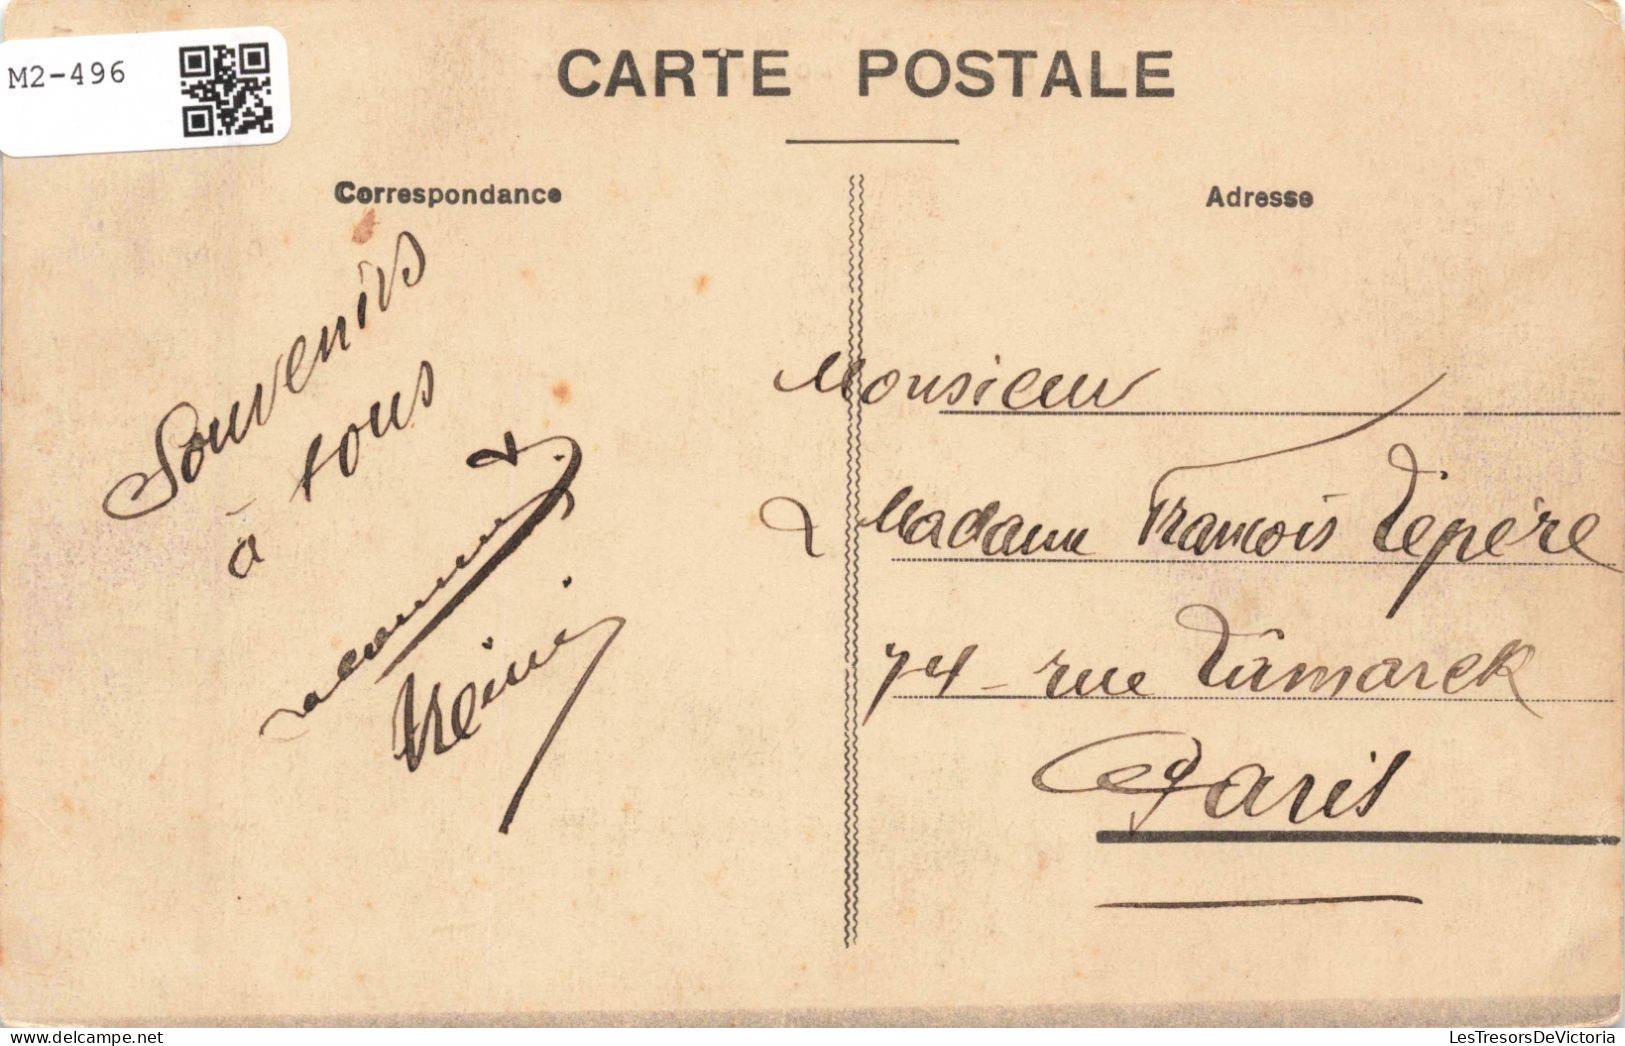 M2-496
CARTE POSTALE
Correspondance
Souvenirs
à tous
Adresse
Monsieur
& Madame François Lepère
74 - rue Lamarck
Paris
LesTresorsDeVictoria